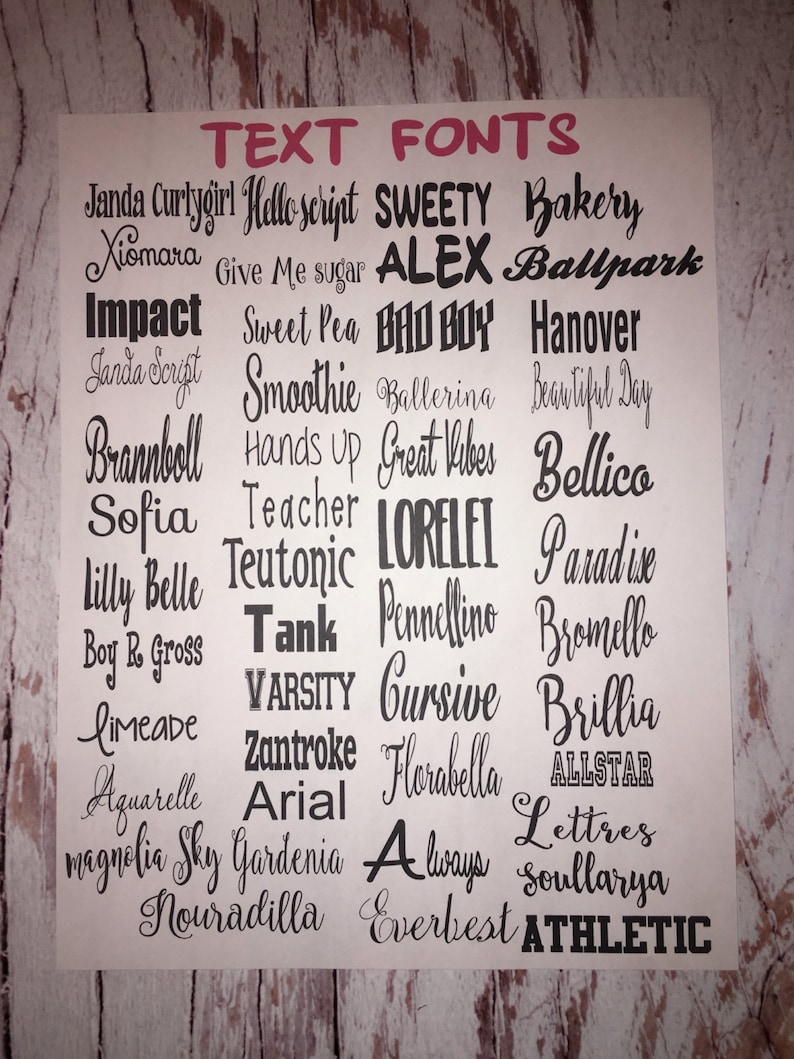 TEXT FONTS
Janda Curlygirl Hello script SWEETY Bakery
Xiomara Give Me sugar ALEX Ballpark
Impact Sweet Pea BAD BOY Hanover
Janda Script Smoothie Ballerina Beautiful Day
Brannboll Hands Up Great Vibes Bellico
Sofia Teacher LORELEI Paradise
Lilly Belle Teutonic Pennellino Bromello
Boy R Gross Tank Cursive Brillia
Limeade VARSITY Florabella ALLSTAR
Aquarelle Zantroke Always Lettres
magnolia Sky Arial Everbest soullarya
Nouradilla Gardenia ATHLETIC